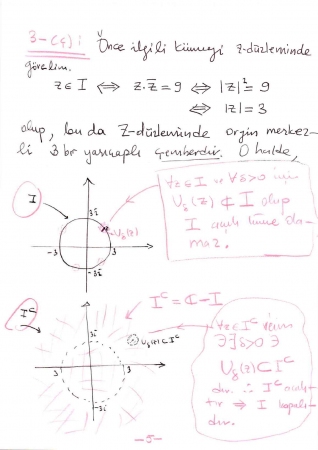 3-(ç): Önce ilgili kümeyi z-düzleminde
görelim.
z ∈ I ⟺ z.z̅ = 9 ⟺ |z|² = 9
⟺ |z| = 3
olup, bu da Z-düzleminde orgin merkez-
li 3 br yarıçaplı çemberdir. O halde,
I
3i
-3
3
-3i
U_δ(z)
∀z∈I ve ∀δ>0 için
U_δ(z) ⊄ I olup
I açık küme ola-
maz.
I^c = ℂ - I
I^c
3i
-3
3
-3i
U_δ(z) ⊂ I^c
∀z∈I^c için
∃δ>0 ∋
U_δ(z) ⊂ I^c
dir. ∴ I^c açık-
tır ⇒ I kapalı-
dır.
-5-